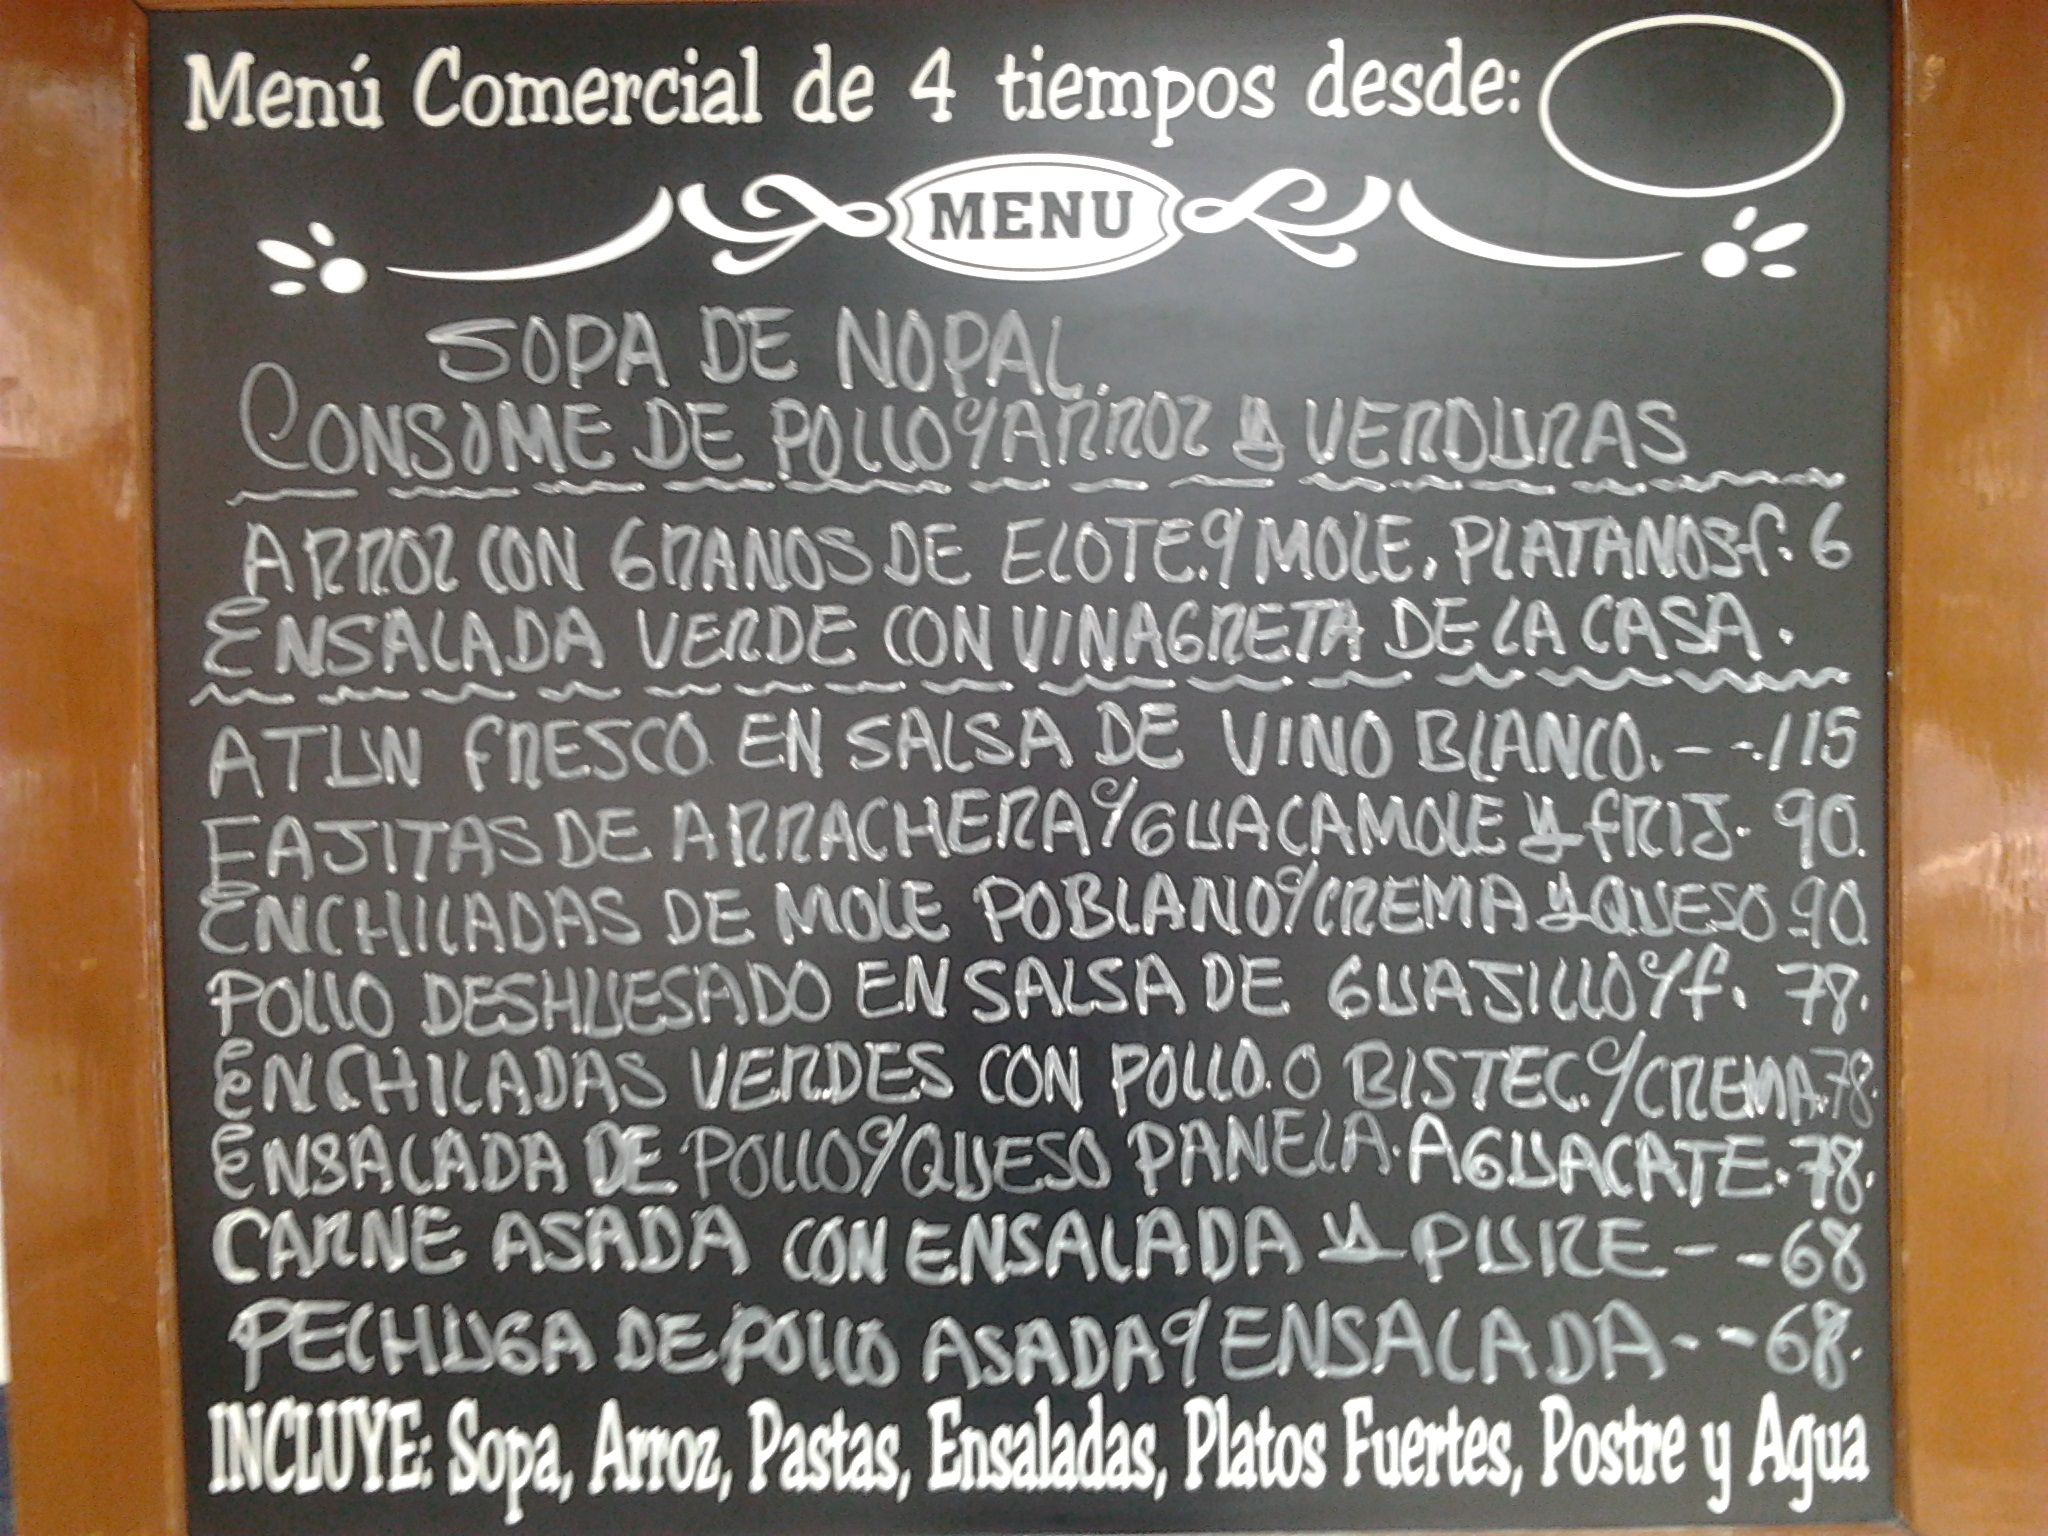 Menú Comercial de 4 tiempos desde:
MENU
SOPA DE NOPAL.
CONSOME DE POLLO C/ARROZ Y VERDURAS
ARROZ CON GRANOS DE ELOTE. C/MOLE, PLATANOS f. 6
ENSALADA VERDE CON VINAGRETA DE LA CASA.
ATUN FRESCO EN SALSA DE VINO BLANCO.--.115
FAJITAS DE ARRACHERA C/GUACAMOLE Y FRIJ. 90.
ENCHILADAS DE MOLE POBLANO C/CREMA Y QUESO.90.
POLLO DESHUESADO EN SALSA DE GUAJILLO C/f. 78.
ENCHILADAS VERDES CON POLLO. O BISTEC. C/CREMA.78.
ENSALADA DE POLLO C/QUESO PANELA. AGUACATE.78.
CARNE ASADA CON ENSALADA Y PURE--68
PECHUGA DE POLLO ASADA C/ENSALADA--68.
INCLUYE: Sopa, Arroz, Pastas, Ensaladas, Platos Fuertes, Postre y Agua